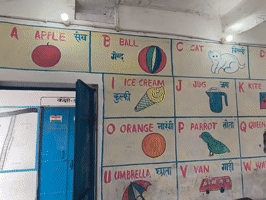 A APPLE सेब
B BALL गेन्द
C CAT बिल्ली
D
I ICE CREAM कुल्फी
J JUG जग
K KITE
O ORANGE नारंगी
P PARROT तोता
Q QUEEN
U UMBRELLA छाता
V VAN गाड़ी
W WA